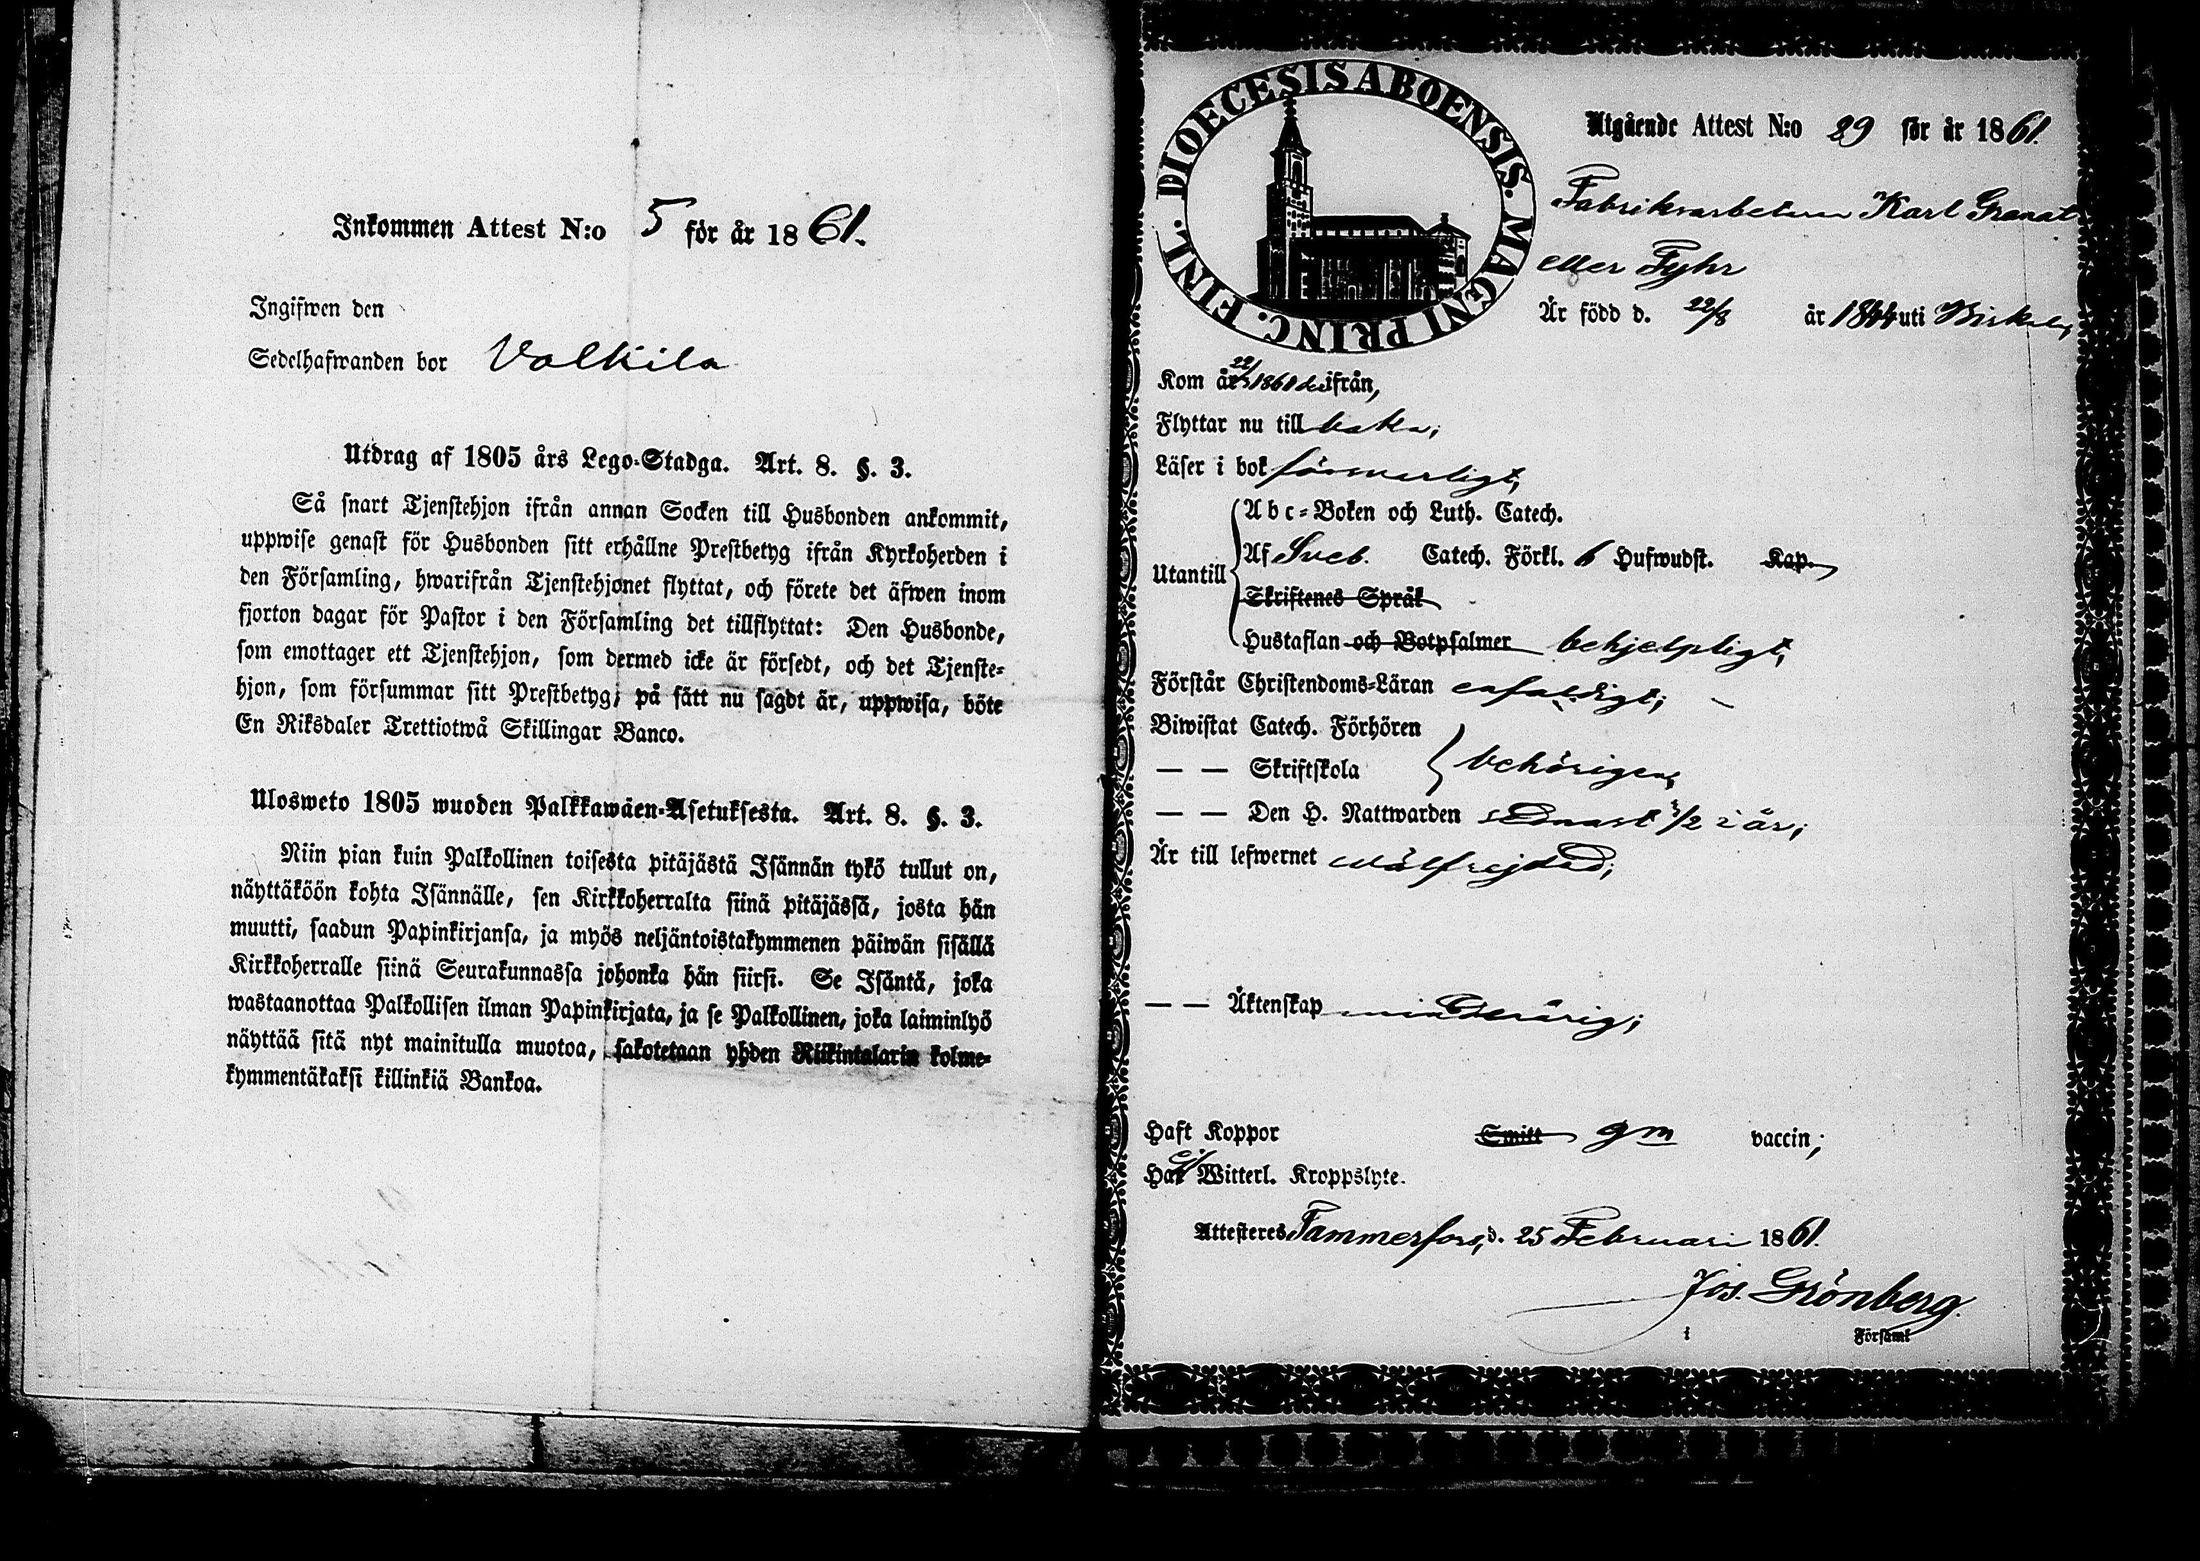 Inkommen Attest N:o 5 för år 1861.
Ingifwen den
Sedelhafwanden bor Valkila
Utdrag af 1805 års Lego-Stadga. Art. 8. §. 3.
Så snart Tjenstehjon ifrån annan Socken till Husbonden ankommit,
uppwise genast för Husbonden sitt erhållne Prestbetyg ifrån Kyrkoherden i
den Församling, hwarifrån Tjenstehjonet flyttat, och förete det äfwen inom
fjorton dagar för Pastor i den Församling det tillflyttat: Den Husbonde,
som emottager ett Tjenstehjon, som dermed icke är försedt, och det Tjenste-
hjon, som försummar sitt Prestbetyg; på sätt nu sagdt är, uppwisa, böte
En Riksdaler Trettiotwå Skillingar Banco.
Ulosweto 1805 wuoden Palkkawäen-Asetuksesta. Art. 8. §. 3.
Niin pian kuin Palkollinen toisesta pitäjästä Isännän tykö tullut on,
näyttäköön kohta Isännälle, sen Kirkkoherralta siinä pitäjässä, josta hän
muutti, saadun Papinkirjansa, ja myös neljäntoistakymmenen päiwän sisällä
Kirkkoherralle siinä Seurakunnassa johonka hän siirsi. Se Isäntä, joka
wastaanottaa Palkollisen ilman Papinkirjata, ja se Palkollinen, joka laiminlyö
näyttää sitä nyt mainitulla muotoa, sakotetaan yhden Riikintalarin kolme-
kymmentäkaksi killinkiä Bankoa.
DIOECESIS ABOENSIS. MAGNI PRINC. FINL.
Utgående Attest N:o 29 för år 1861.
Fabriksarbetaren Karl Granat
eller Fyhr
Är född d. 22/8 år 1844 uti Birkala,
Kom år 1861 derifrån,
Flyttar nu till baka;
Läser i bok försvarligt,
Utantill
Abc-Boken och Luth. Catech.
Af Sveb. Catech. Förkl. 6 Hufwudst. Kap.
Skriftenes Språk
Hustaflan och Botpsalmer behjelpligt,
Förstår Christendoms-Läran enfaldigt;
Biwistat Catech. Förhören
— — Skriftskola behörigen,
— — Den H. Nattwarden sednast 3/2 i år;
Är till lefwernet wälfrejdad;
— — Äktenskap minderårig;
Haft Koppor Smitt gm vaccin;
Har ej Witterl. Kroppslyte.
Attesteres Tammerfors, d. 25 Februari 1861.
Jos. Grönberg.
i Församl